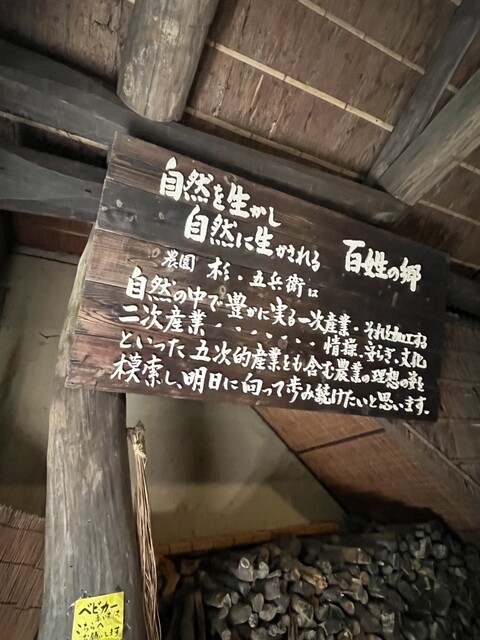 自然を生かし
自然に生かされる 百姓の郷
農園 杉・五兵衛は
自然の中で豊かに実る一次産業・それを加工する
二次産業・・・・・・情操、安らぎ、文化
といった五次的産業をも含む農業の理想の姿を
模索し、明日に向って歩み続けたいと思います。
ベビカー
こちらへ
お願いします